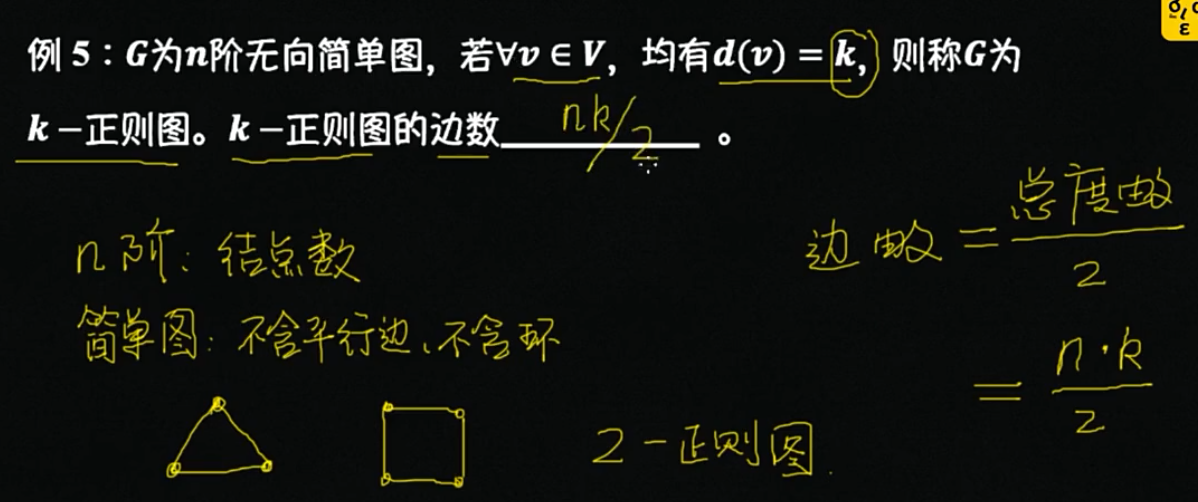 例 5：G为n阶无向简单图，若∀v ∈ V，均有d(v) = k，则称G为
k －正则图。k －正则图的边数 nk/2 。
n阶：结点数
简单图：不含平行边、不含环
2－正则图.
边数 = 总度数/2
= n·k/2